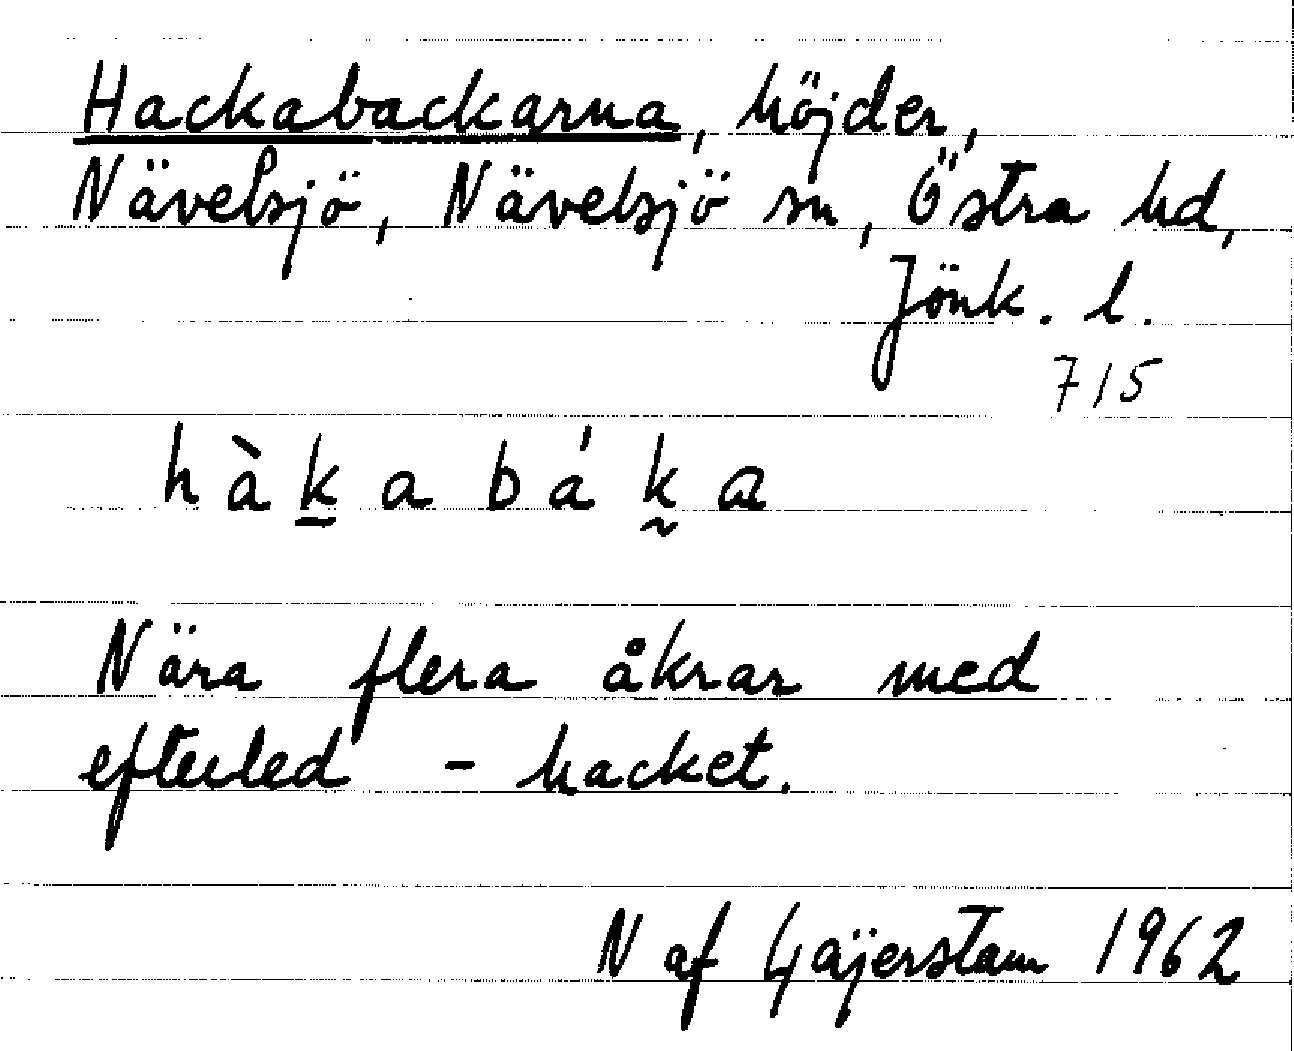 Hackabackarna, höjder,
Nävelsjö, Nävelsjö sn, Östra hd,
Jönk. l.
715
hàk̲abák̰a
Nära flera åkrar med
efterled - hacket.
N af Gäjerstam 1962